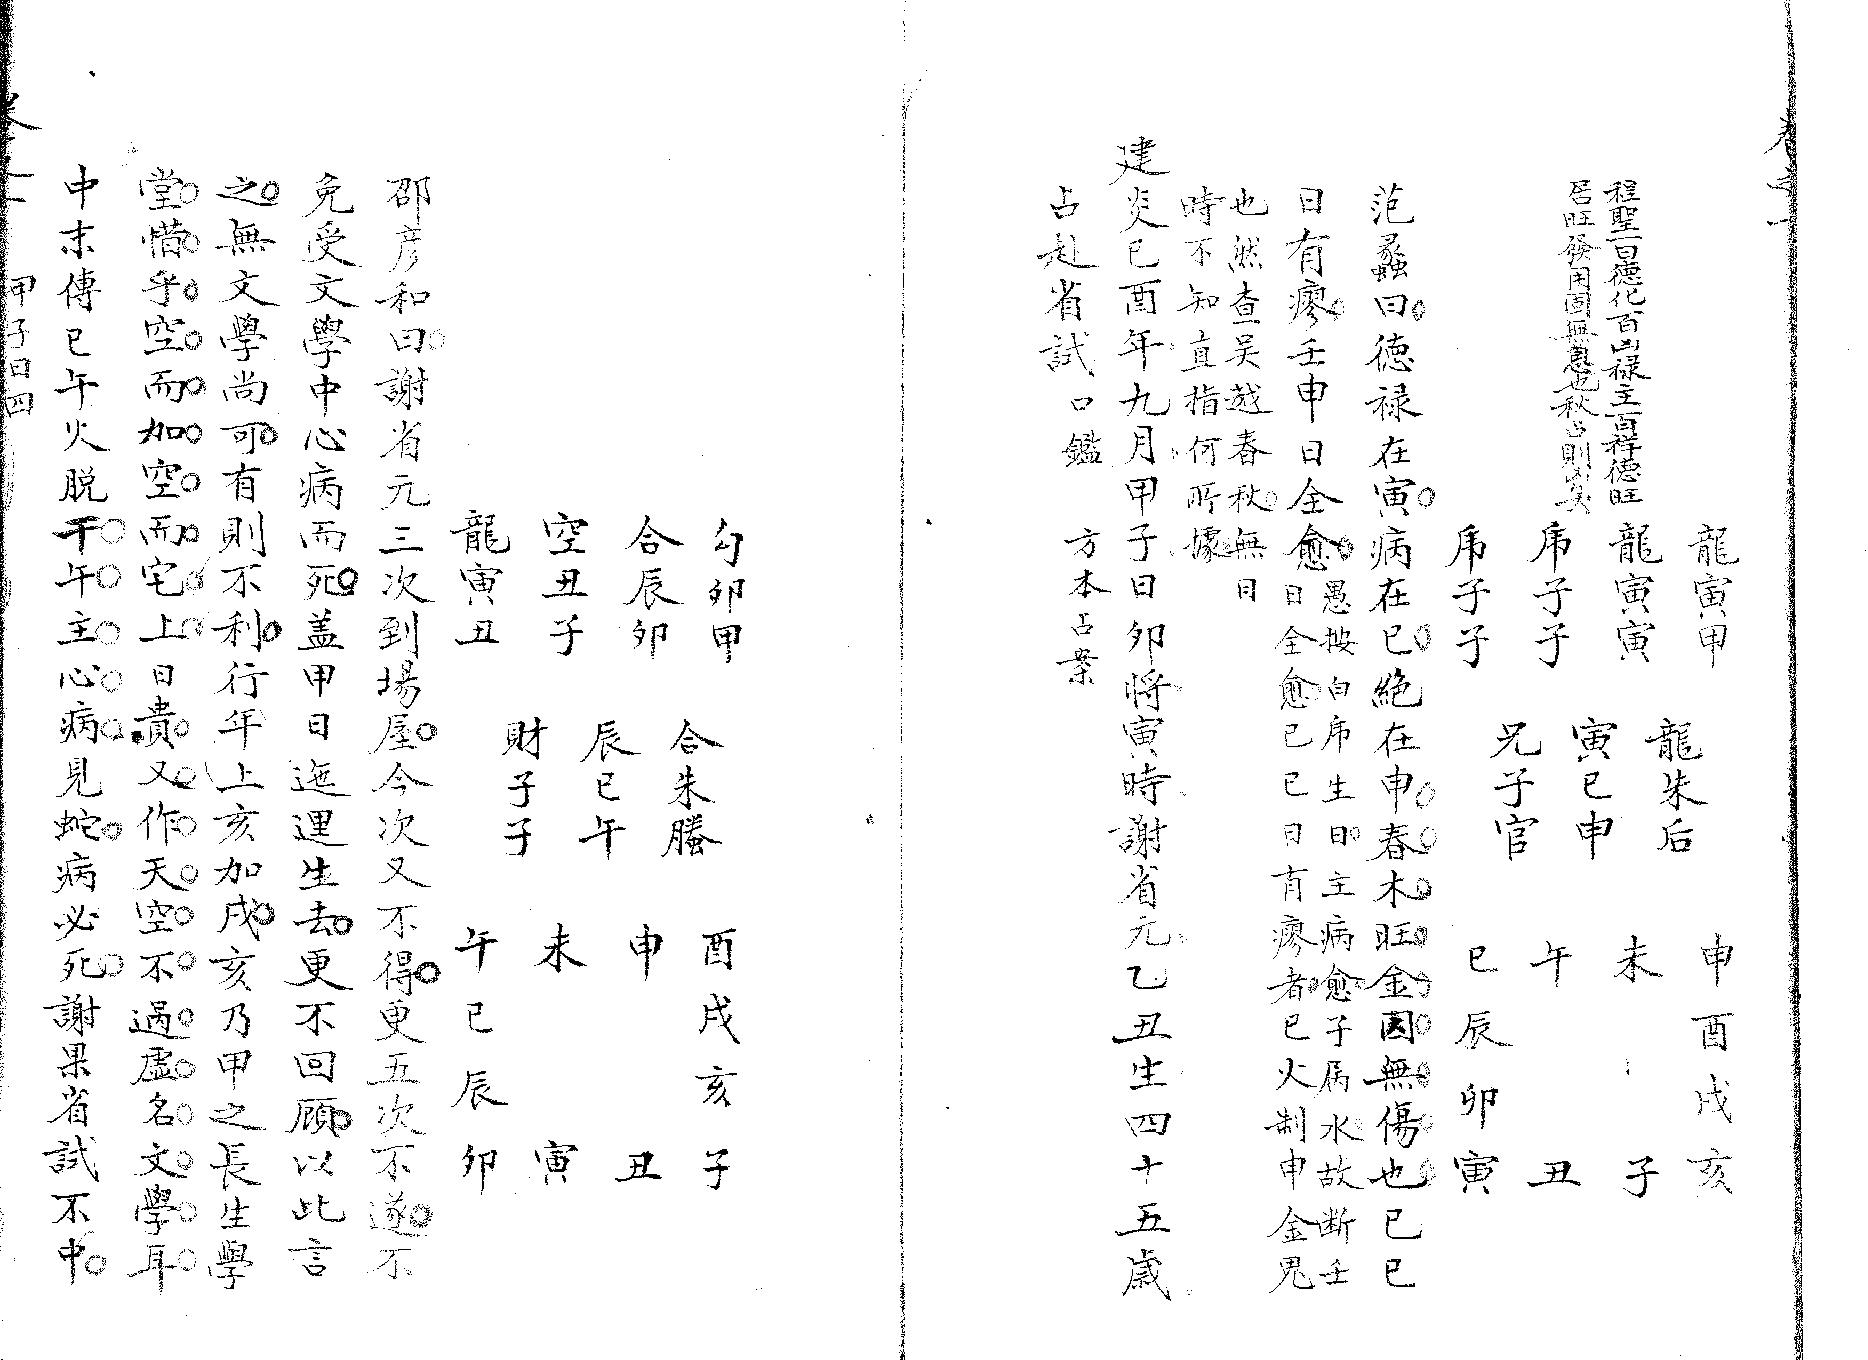 卷之一
程聖百德化百凶祿主百祥德旺
居旺發用固無患也秋占則異
龍寅甲
龍寅寅
虎子子
虎子子
龍朱后
寅巳申
兄子官
申酉戌亥
未　　子
午　　丑
巳辰卯寅
范蠡曰德祿在寅病在巳絕在申春木旺金囚無傷也巳巳
日有瘳壬申日全愈愚按白虎生日主病愈子屬水故斷壬
日全愈巳巳日有瘳者巳火制申金鬼
也然查吳越春秋無日
時不知直指何所據
建炎己酉年九月甲子日卯將寅時謝省元乙丑生四十五歲
占赴省試 口鑑 方本占案
勾卯甲
合辰卯
空丑子
龍寅丑
合朱螣
辰巳午
財子子
酉戌亥子
申　　丑
未　　寅
午巳辰卯
邵彦和曰謝省元三次到場屋今次又不得更五次不遂不
免受文學中心病而死盖甲日迤邐生去更不回顧以此言
之無文學尚可有則不利行年上亥加戌亥乃甲之長生學
堂惜乎空而加空而宅上日貴又作天空不過虛名文學耳
中末傳巳午火脫干午主心病見蛇病必死謝果省試不中
卷之一 甲子日四